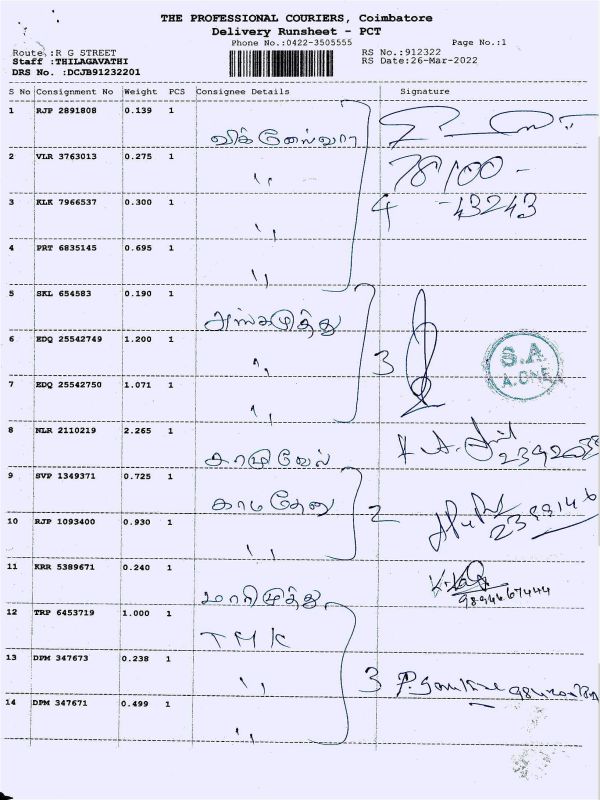 THE PROFESSIONAL COURIERS, Coimbatore
Delivery Runsheet - PCT
Phone No.:0422-3505555 Page No.:1
Route :R G STREET RS No.:912322
Staff :THILAGAVATHI RS Date:26-Mar-2022
DRS No. :DCJB91232201
S No Consignment No Weight PCS Consignee Details Signature
1 RJP 2891808 0.139 1
விக்னேஸ்வரா
2 VLR 3763013 0.275 1 78100-
" 43243
3 KLK 7966537 0.300 1 4
"
4 PRT 6835145 0.695 1
"
5 SKL 654583 0.190 1
6 EDQ 25542749 1.200 1 3 S.A.
"
7 EDQ 25542750 1.071 1
"
8 NLR 2110219 2.265 1
9 SVP 1349371 0.725 1
காமதேனு 2
10 RJP 1093400 0.930 1
"
11 KRR 5389671 0.240 1
மாரிமுத்து 9894667444
12 TRP 6453719 1.000 1
TMK
13 DPM 347673 0.238 1
" 3
14 DPM 347671 0.499 1
"